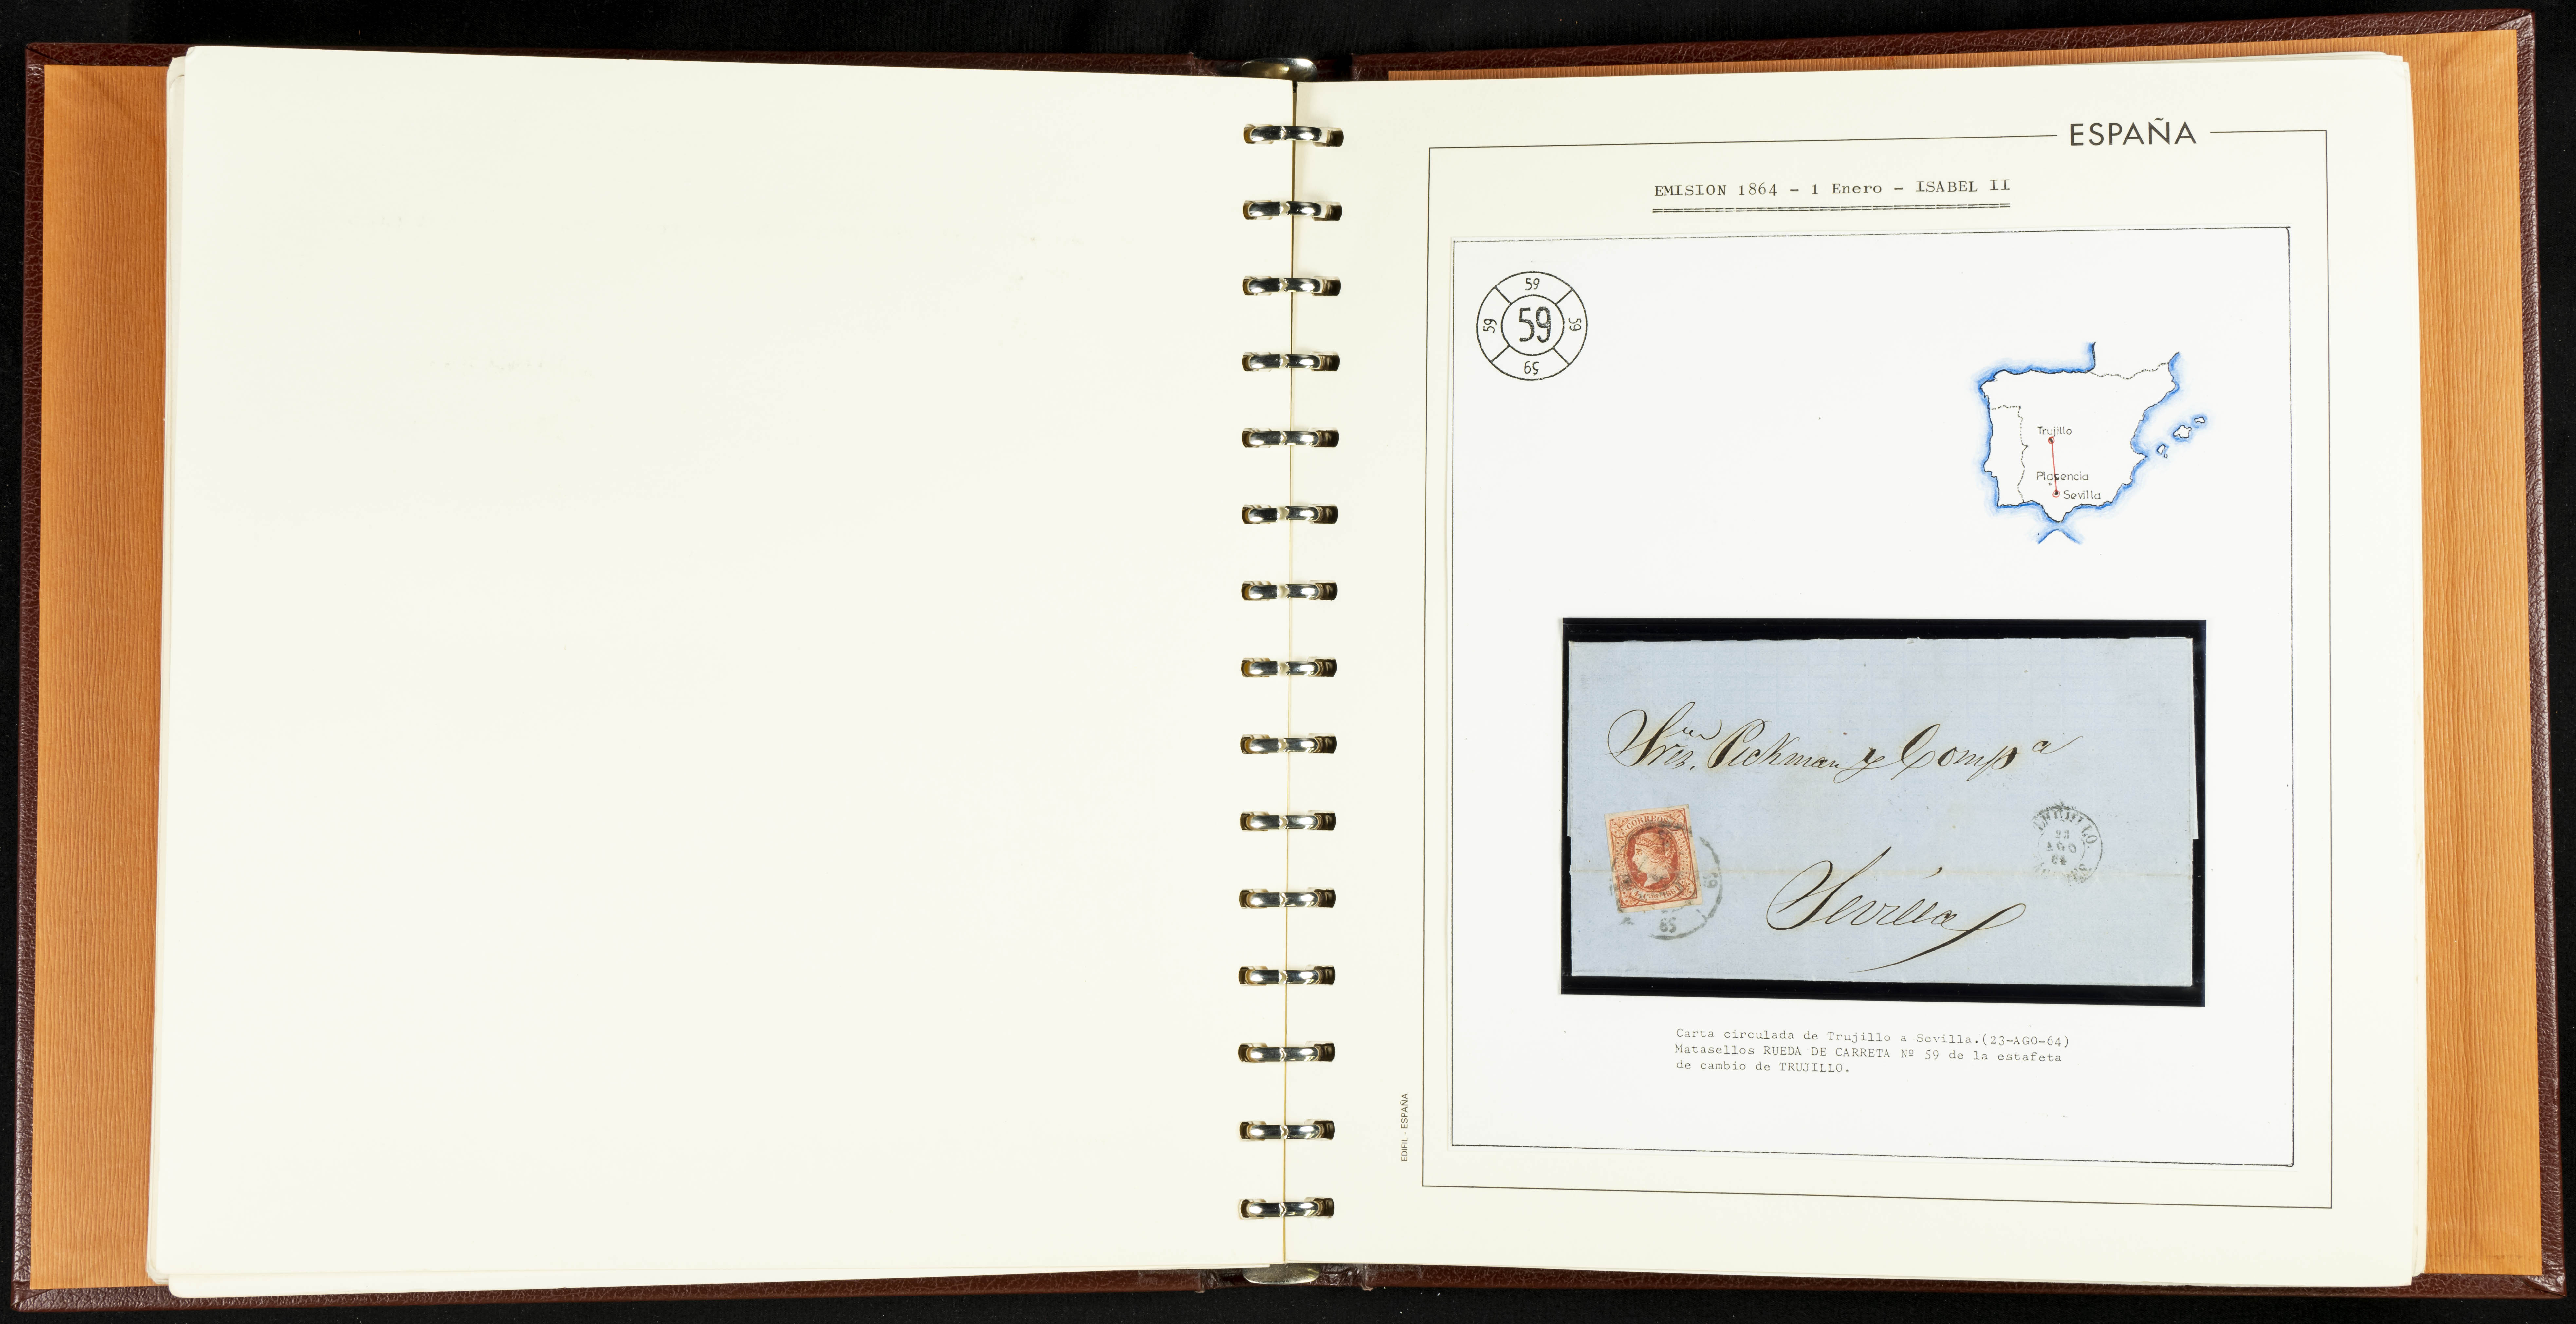 ESPAÑA
EMISION 1864 - 1 Enero - ISABEL II
59
59 59 59
59
Trujillo
Plasencia
Sevilla
Sres. Pickman y Compª
CORREOS
TRUJILLO
23
AGO
64
59
59
Sevilla
Carta circulada de Trujillo a Sevilla.(23-AGO-64)
Matasellos RUEDA DE CARRETA Nº 59 de la estafeta
de cambio de TRUJILLO.
EDIFIL - ESPAÑA